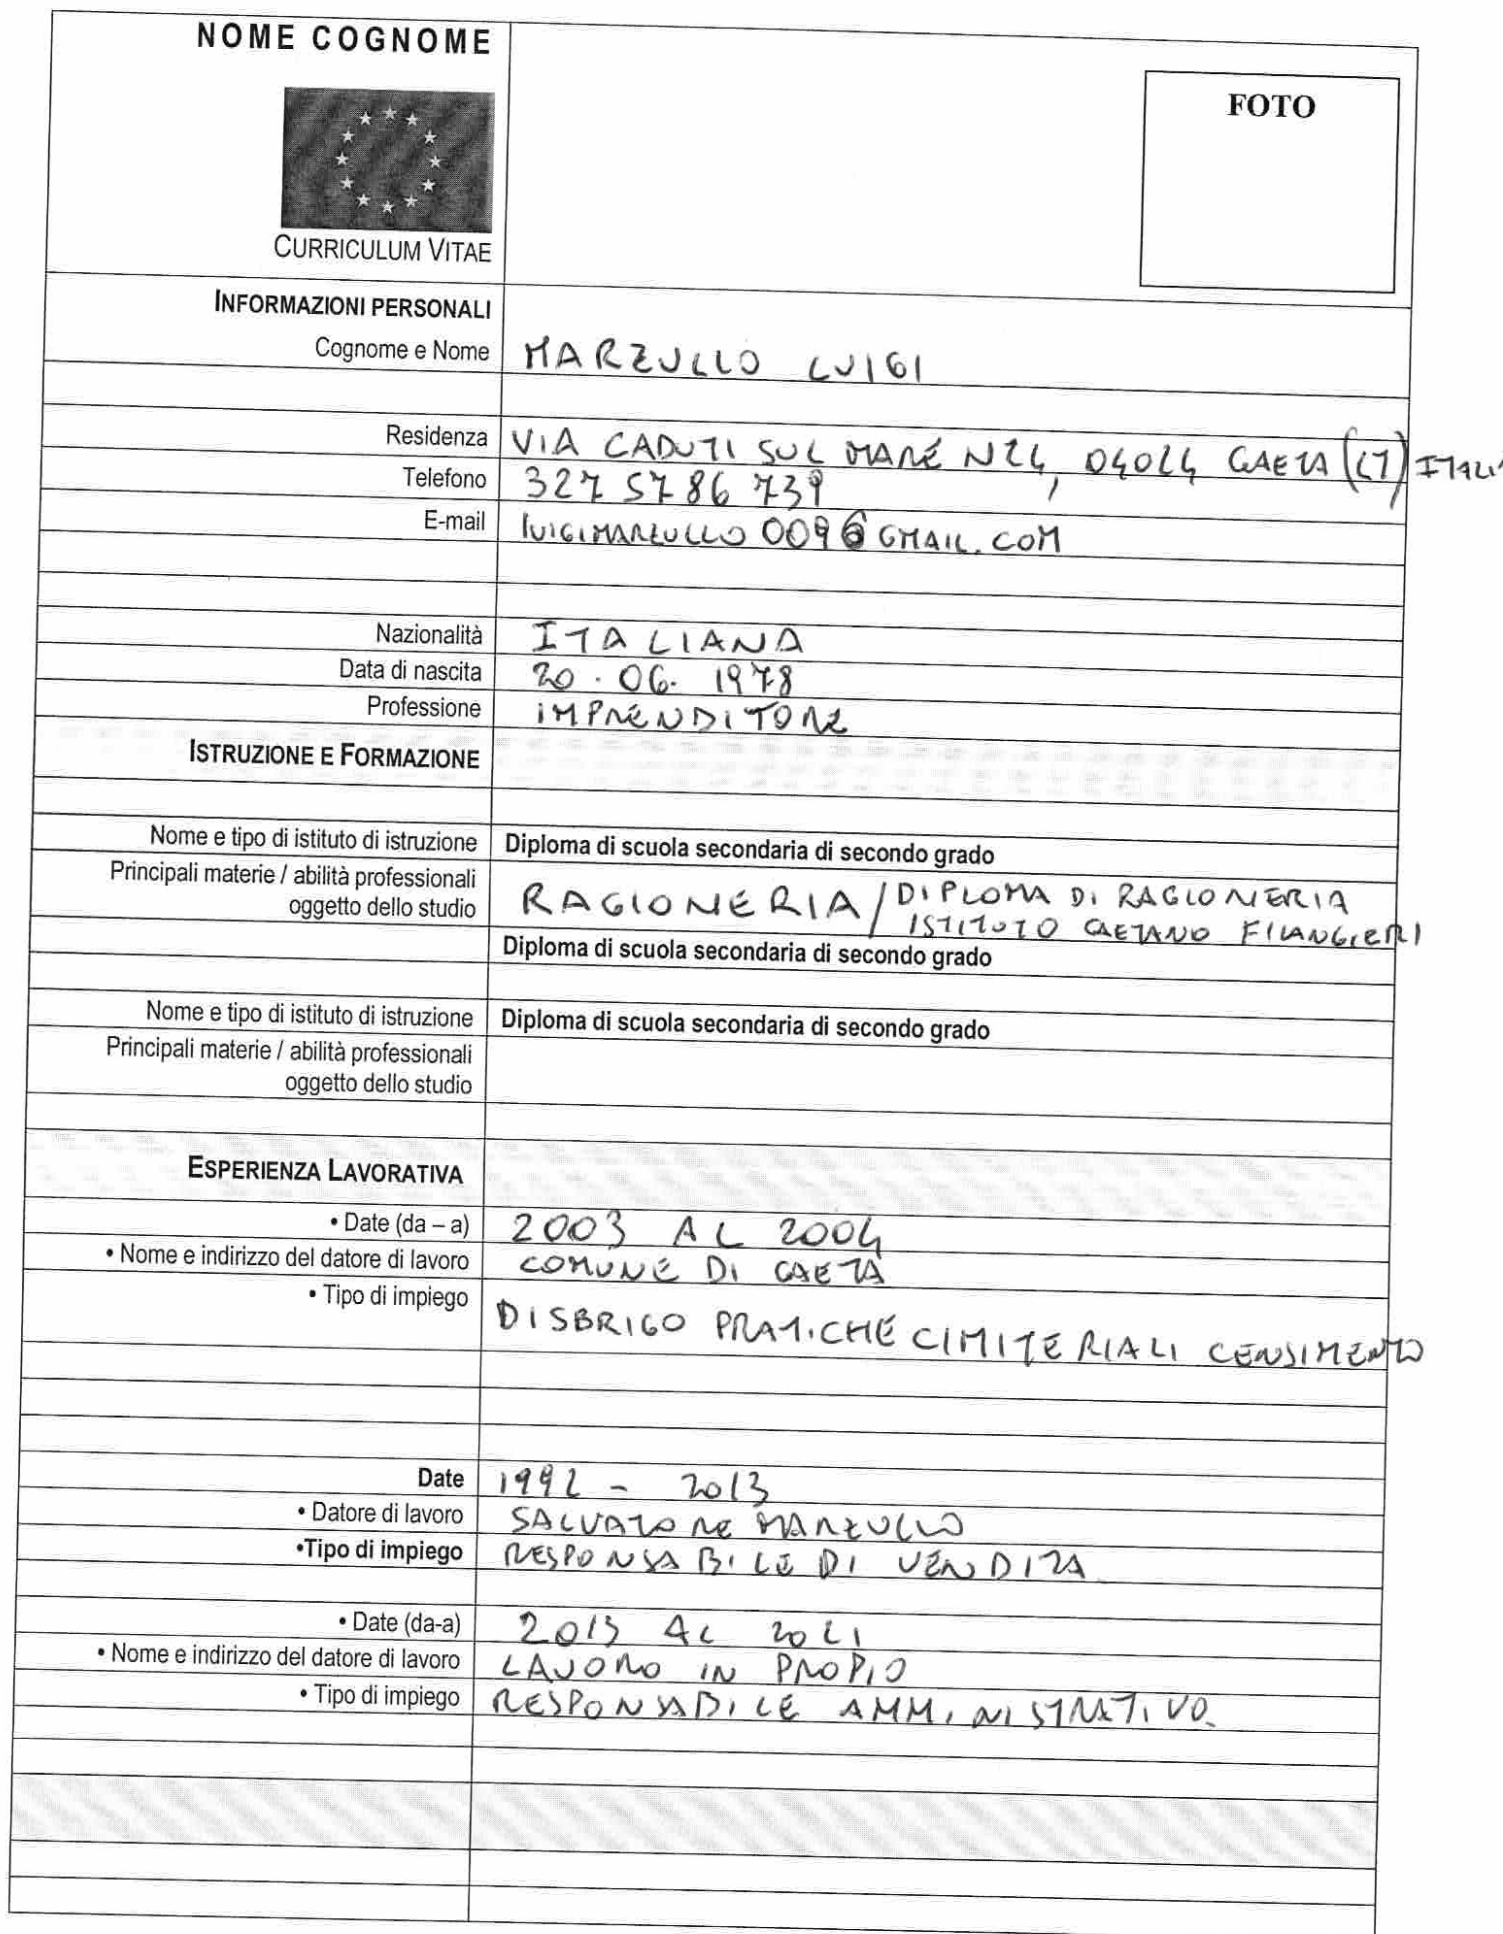 NOME COGNOME
FOTO
CURRICULUM VITAE
INFORMAZIONI PERSONALI
Cognome e Nome MARZULLO LUIGI
Residenza VIA CADUTI SUL MARE N24, 04024 GAETA (LT) ITALIA
Telefono 327 5786 739
E-mail LUIGIMARZULLO 009@GMAIL.COM
Nazionalità ITALIANA
Data di nascita 20.06.1978
Professione IMPRENDITORE
ISTRUZIONE E FORMAZIONE
Nome e tipo di istituto di istruzione Diploma di scuola secondaria di secondo grado
Principali materie / abilità professionali
oggetto dello studio RAGIONERIA / DIPLOMA DI RAGIONERIA
ISTITUTO GAETANO FILANGIERI
Diploma di scuola secondaria di secondo grado
Nome e tipo di istituto di istruzione Diploma di scuola secondaria di secondo grado
Principali materie / abilità professionali
oggetto dello studio
ESPERIENZA LAVORATIVA
• Date (da – a) 2003 AL 2004
• Nome e indirizzo del datore di lavoro COMUNE DI GAETA
• Tipo di impiego DISBRIGO PRATICHE CIMITERIALI CENSIMENTO
Date 1992 - 2013
• Datore di lavoro SALVATORE MARZULLO
•Tipo di impiego RESPONSABILE DI VENDITA
• Date (da-a) 2013 AL 2021
• Nome e indirizzo del datore di lavoro LAVORO IN PROPIO
• Tipo di impiego RESPONSABILE AMMINISTRATIVO.